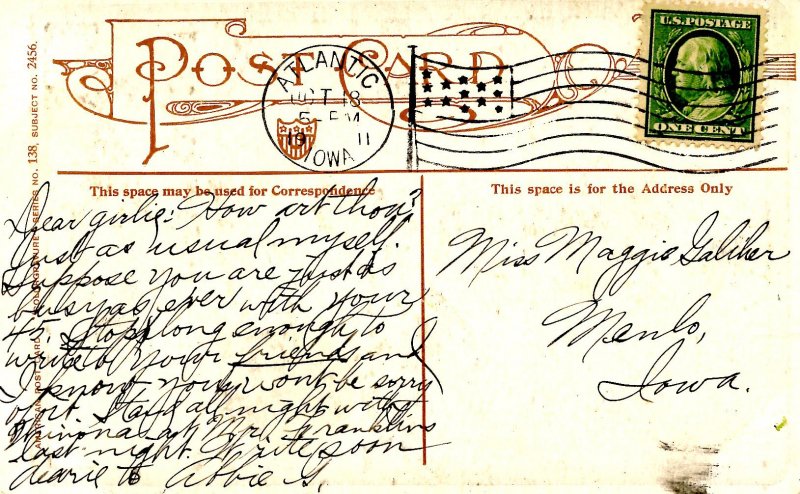 POST CARD
U.S. POSTAGE
ONE CENT
ATLANTIC
OCT 18
5 - PM
19 11
IOWA
This space may be used for Correspondence
This space is for the Address Only
Dear girlie: How art thou?
Just as usual myself.
Suppose you are just as
busy as ever with your
45. Stop long enough to
write to your friends and
I know you wont be sorry
for it. Staid all night with
Winona at Mr. Franklins
last night. Write soon
dearie to Abbie G.
Miss Maggie Galiher
Menlo,
Iowa.
SERIES NO. 138, SUBJECT NO. 2456.
AMERICAN POST CARD